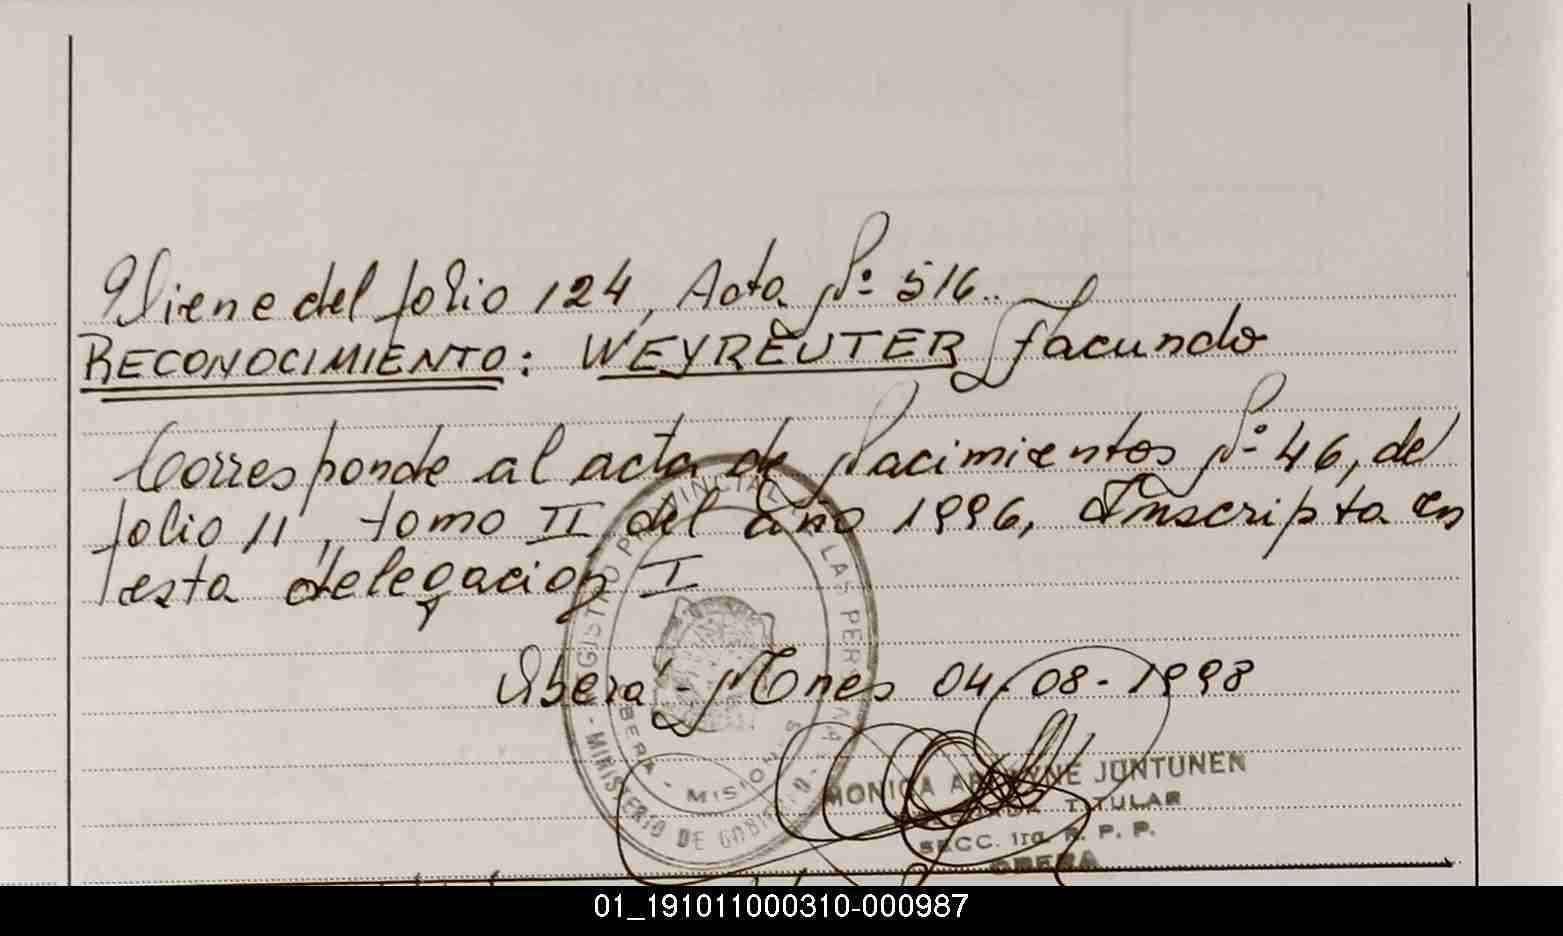 Viene del folio 124, Acta Nº 516..
RECONOCIMIENTO: WEYREUTER Facundo
Corresponde al acta de Nacimientos Nº 46, de
folio 11, tomo II, del año 1996, Inscripta en
esta delegación I
Oberá - Mnes 04-08-1998
REGISTRO PROVINCIAL LAS PERSONAS
OBERA - MISIONES
- MINISTERIO DE GOBIERNO -
MONICA JUNTUNEN
TITULAR
SECC. 1ra. R. P. P.
OBERA
01_191011000310-000987